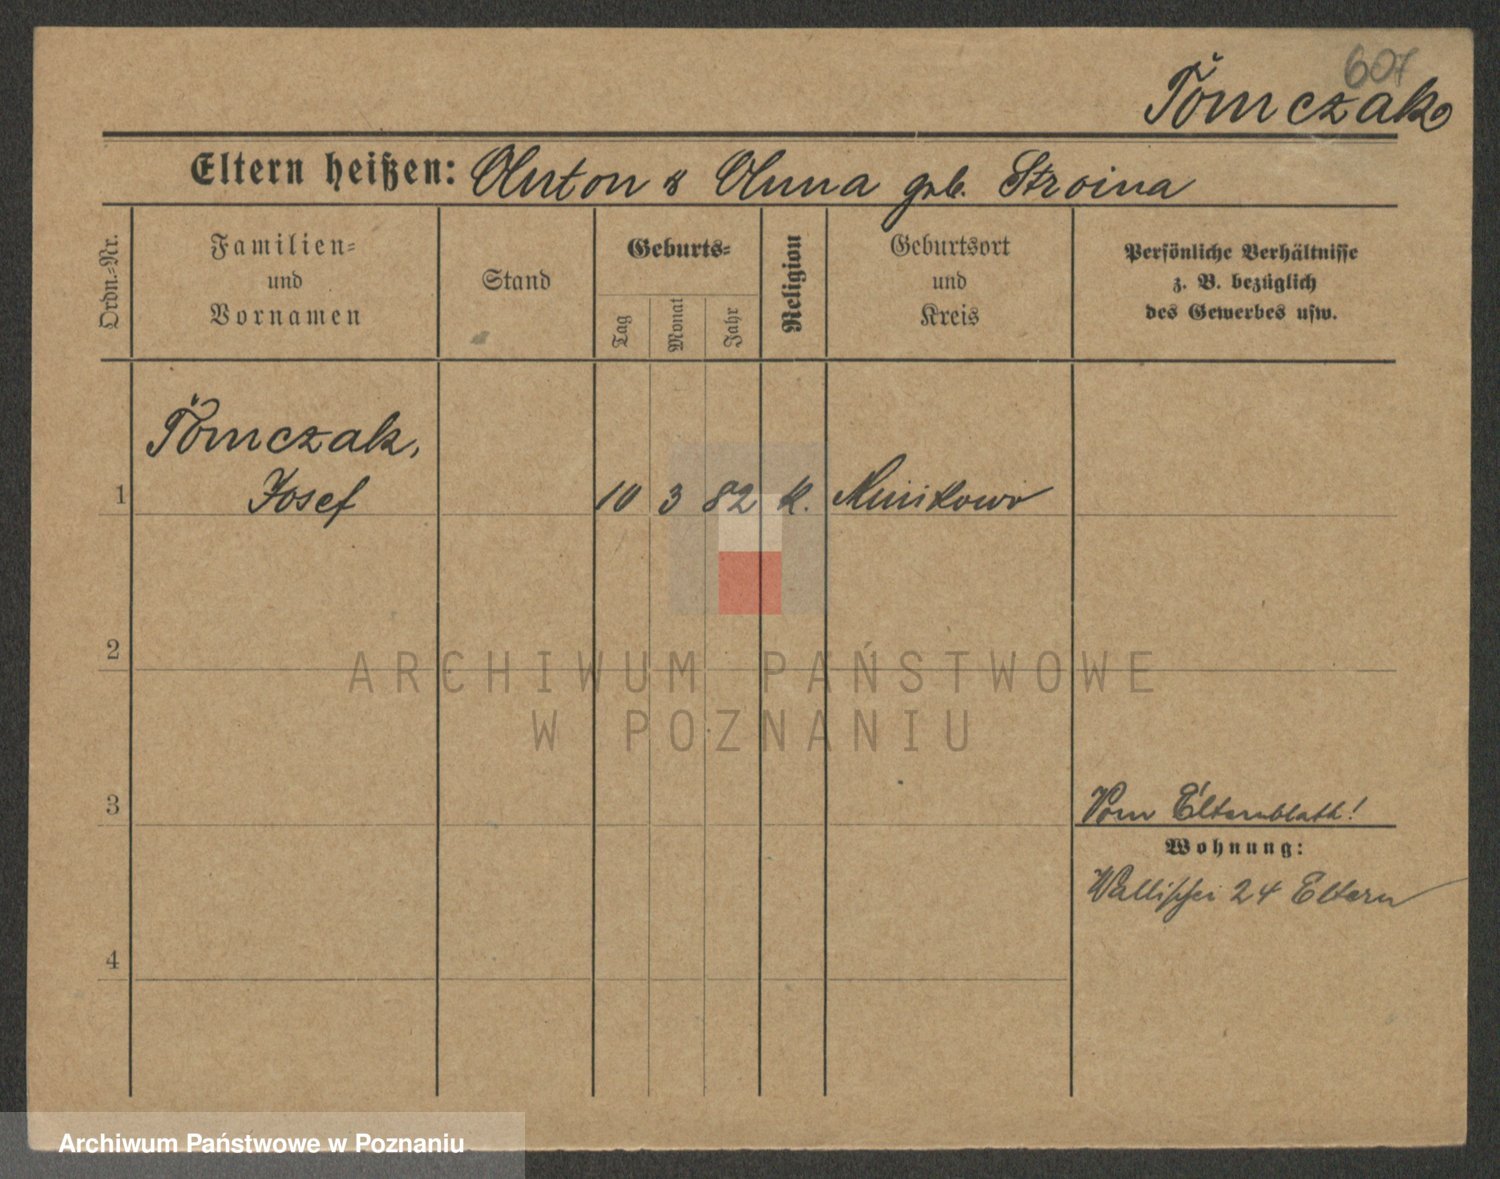 607
Tomczak
Eltern heißen: Anton & Anna geb. Stroina
Ordn.=Nr.
Familien=
und
Vornamen
Stand
Geburts=
Tag
Monat
Jahr
Religion
Geburtsort
und
Kreis
Persönliche Verhältnisse
z. B. bezüglich
des Gewerbes usw.
Tomczak,
1 Josef 10 3 82 k. Minikowo
2
ARCHIWUM PAŃSTWOWE
W POZNANIU
3
Vom Elternblatt!
Wohnung:
Wallischei 24 Eltern
4
Archiwum Państwowe w Poznaniu